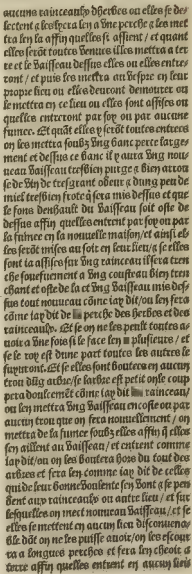 aucuns rainceaulx dherbes ou elles se des
lectent a les herra len a Vne perche & les met
tra len la affin quelles si assient / et quant
elles serōt toutes Venues illes mettra a ter
re et le Vaisseau dessus elles ou elles entre
ront / et puis les mettra au Vespre en leur
propre lieu ou elles deuront demourer ou
le mettra en ce lieu ou elles sont assises ou
quelles entreront par soy ou par aucune
fumee. Et quāt elles y serōt toutes entrees
on les mettra soubz Vng banc perce large
ment et dessus ce banc il y aura Vng nou
ueau Vaisseau tresbien purge & bien arrou
se de Vin de tresgrant odeur & Vng peu de
miel tresbien frote q̄ sera mis dessus et que
le fons denhault du Vaisseau soit oste de
dessus affin quelles entrent par soy ou par
la fumee en la nouuelle maison / et ainsi el
les serōt mises au soir en leur lieu / & se elles
sont la assises sur Vng rainceau il sera tren
che souefuement a Vng cousteau bien tren
chant et oste de la et Vng Vaisseau mis des
sus tout nouueau cōme iay dit / ou len fera
cōme iay dit de perche des herbes et des
rainceaulx. Et se on ne les peult toutes a
uoir a Vne fois si le face len plusieurs / et
se le roy est dune part toutes les autres le
suyuront. Et se elles sont boutees en aucun
trou dūg arbre / se larbre est petit on le coup
pera doulcemēt cōme iay dit rainceau /
ou len mettra Vng Vaisseau encoste ou par
aucun trou que on fera nouuellement / on
mettra de la fumee soubz elles affin q̄ elles
sen aillent au Vaisseau / et entrent comme
iay dit / ou on les boutera hors du tout des
arbres et fera len comme iay dit de celles
qui de leur bonne Voulente sen Vont & se pen
dent aux rainceaulx ou autre lieu / et sur
lesquelles on mect nouueau Vaisseau / et se
elles se mettent en aucun lieu disconuena
ble dōt on ne les puisse auoir / on les escour
ra a longues perches et fera len cheoir a
terre affin quelles entrent en aucun lieu